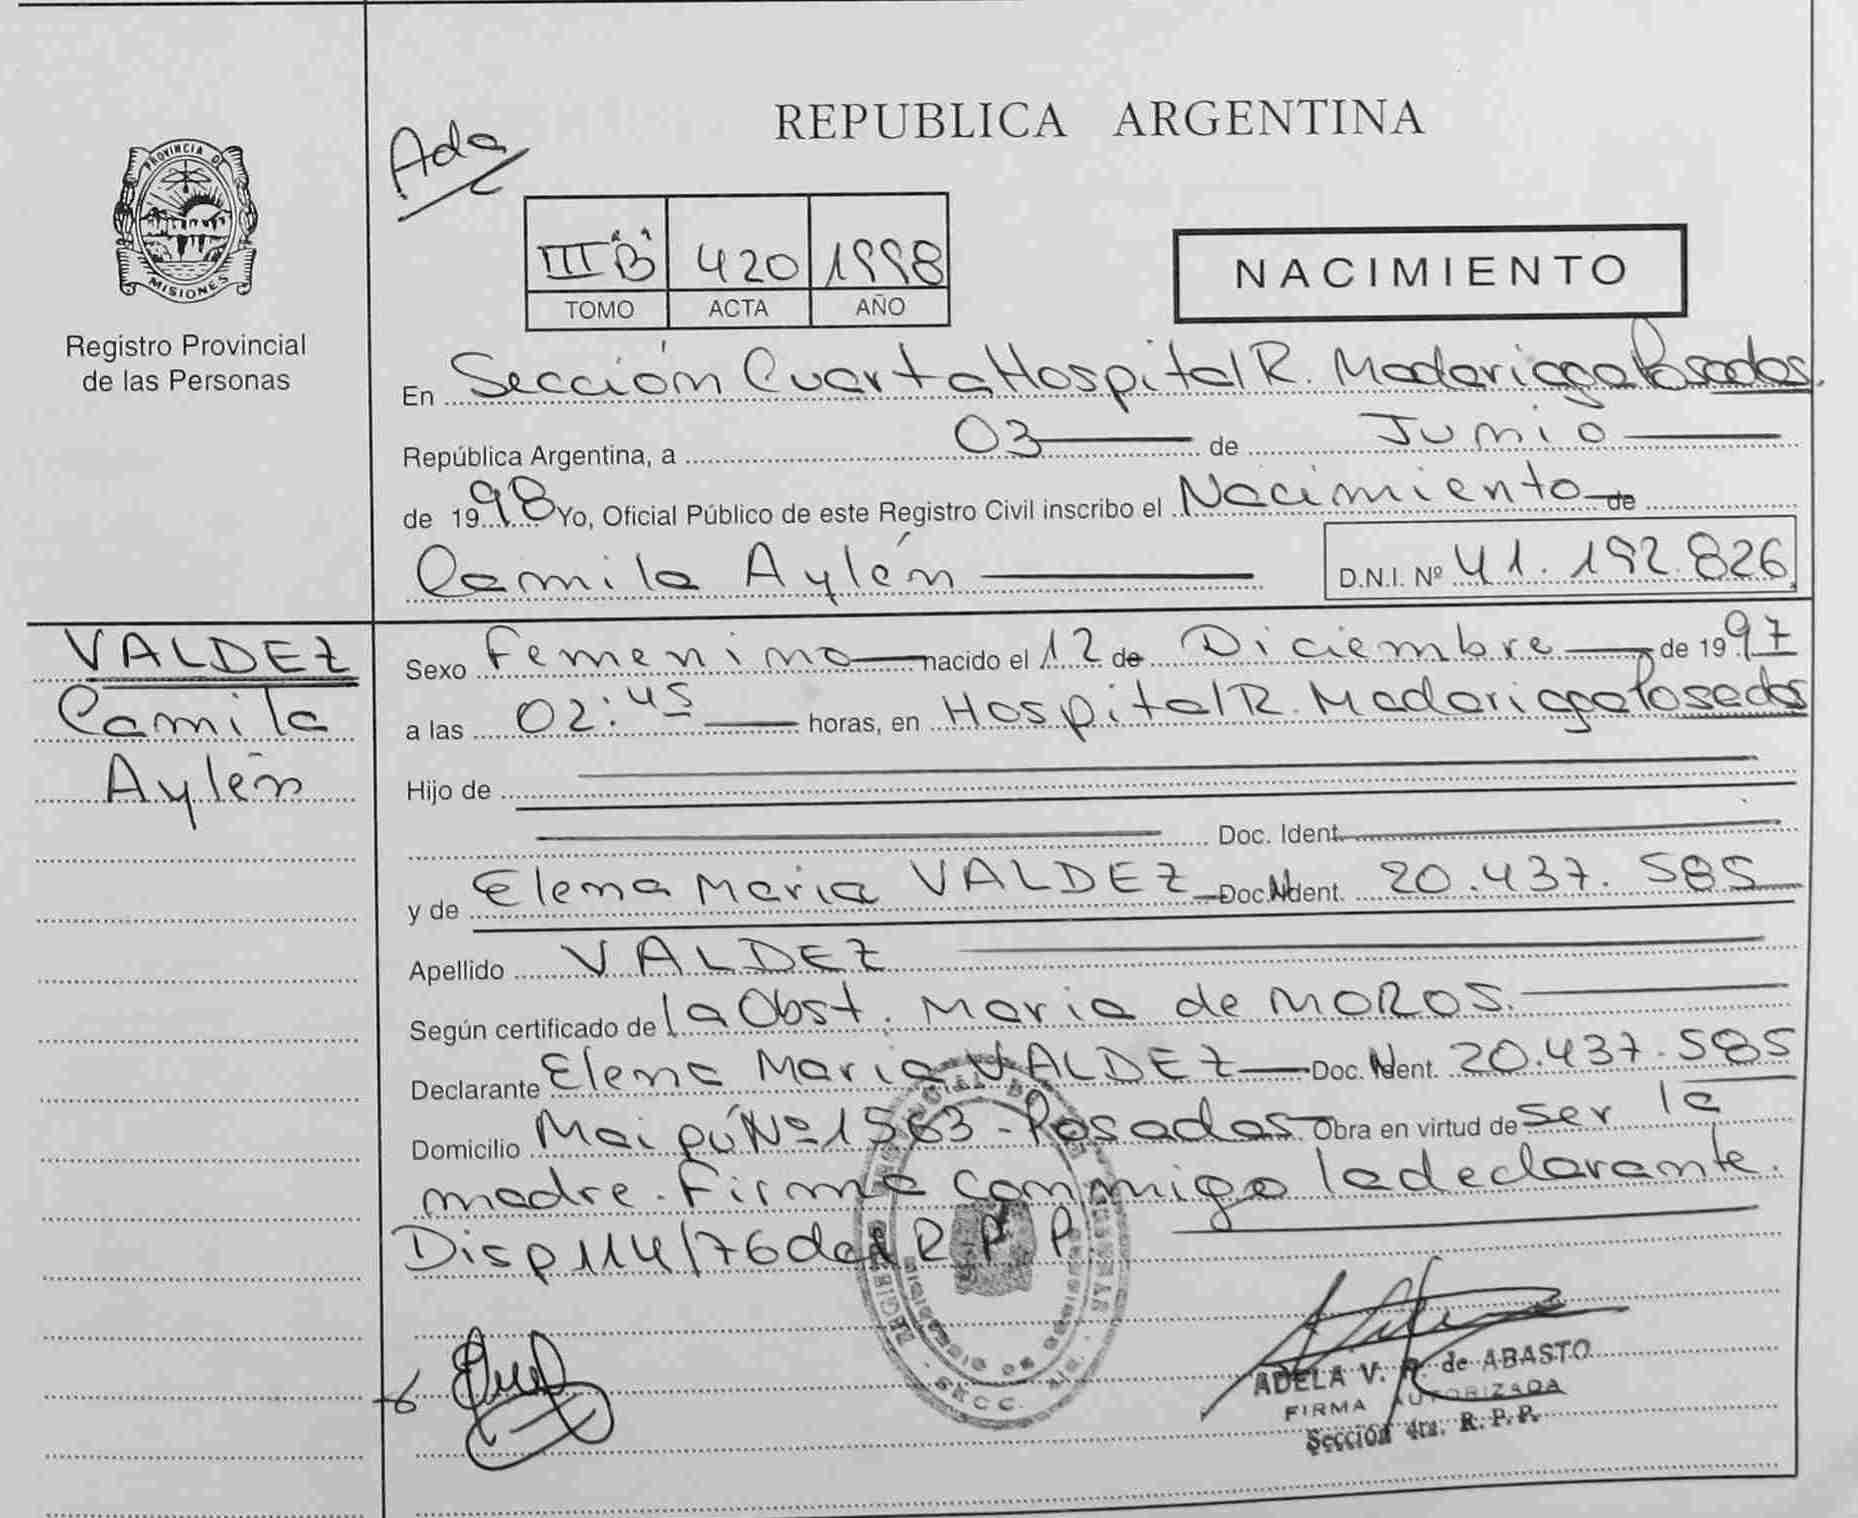 REPUBLICA ARGENTINA
Ada
PROVINCIA DE
MISIONES
Registro Provincial
de las Personas
III "B" 420 1998
TOMO ACTA AÑO
NACIMIENTO
En Sección Cuarta Hospital R. Madariaga Posadas.
República Argentina, a 03 de Junio
de 1998 Yo, Oficial Público de este Registro Civil inscribo el Nacimiento de
Camila Aylén D.N.I. Nº 41.192.826
VALDEZ
Camila
Aylén
Sexo Femenino nacido el 12 de Diciembre de 1997
a las 02:45 horas, en Hospital R. Madariaga Posadas
Hijo de
Doc. Ident.
y de Elena Maria VALDEZ Doc. Ident. 20.437.585
Apellido VALDEZ
Según certificado de la Obst. Maria de MOROS.
Declarante Elena Maria VALDEZ Doc. Ident. 20.437.585
Domicilio Maipú Nº 1563 - Posadas Obra en virtud de ser la
madre. Firma conmigo la declarante.
Disp 114/76 del R.P.P.
ADELA V. R. de ABASTO
FIRMA AUTORIZADA
Sección 4ta. R.P.P.